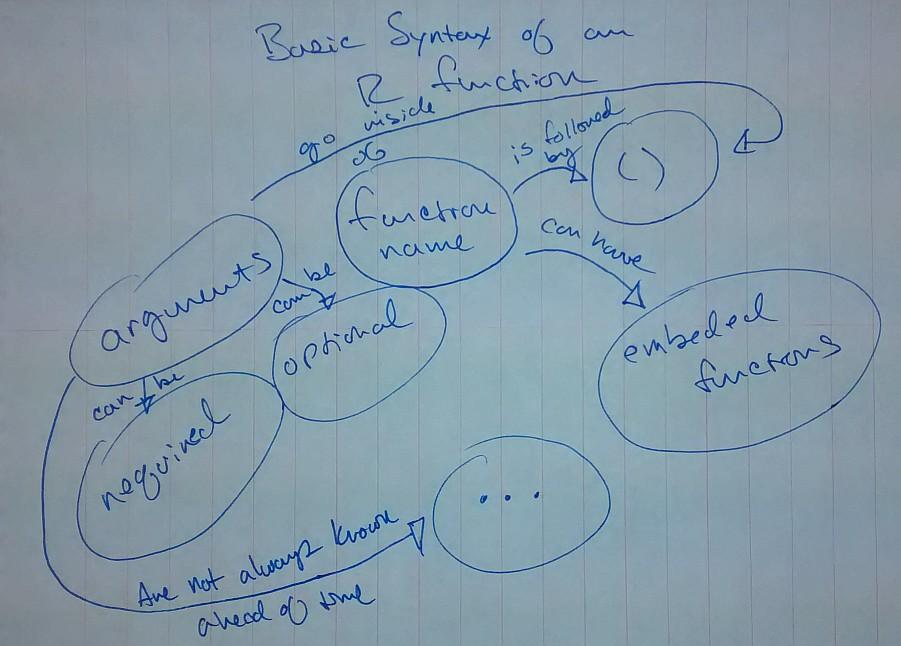 Basic Syntax of an
R function
go inside
of
is followed
by
( )
function
name
can have
arguments
can be
optional
embeded
functions
can be
required
...
Are not always known
ahead of time